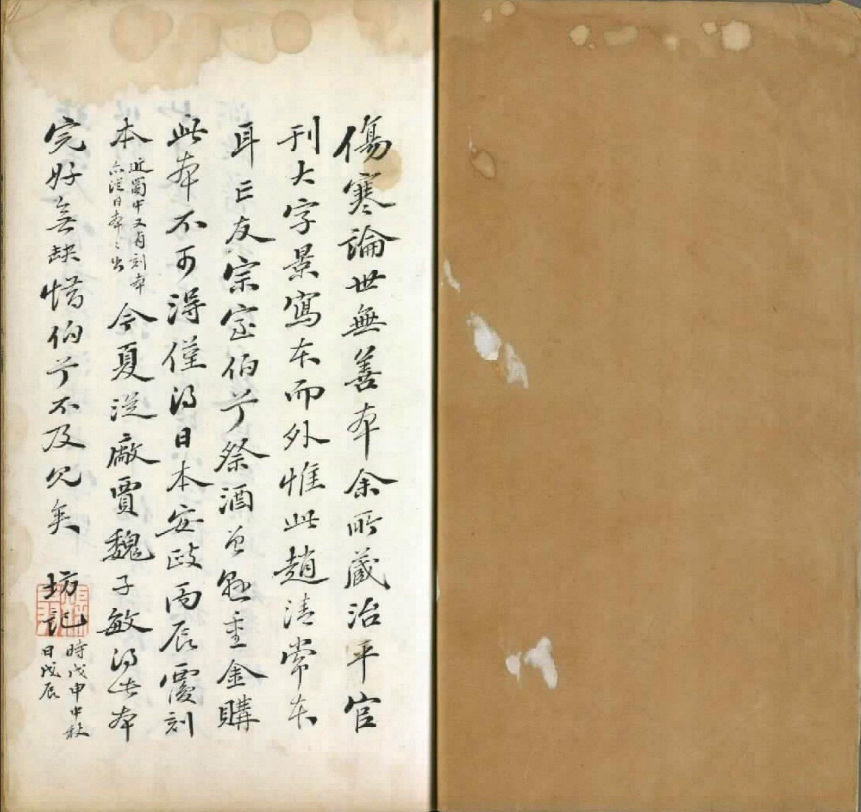 傷寒論世無善本余所藏治平官
刊大字景寫本而外惟此趙清常本
耳亡友宗室伯兮祭酒曾懸重金購
此本不可得僅得日本安政丙辰覆刻
本近蜀中又有刻本亦從日本々出今夏從廠賈魏子敏得此本
完好無缺惜伯兮不及見矣 坊記時戊申中秋日戊辰